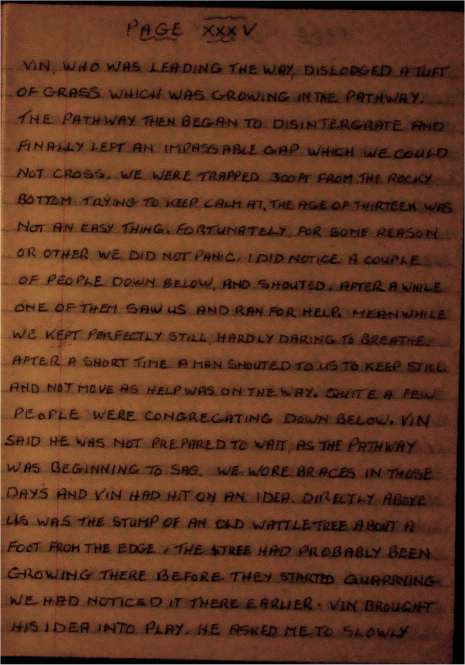 PAGE XXXV
VIN, WHO WAS LEADING THE WAY, DISLODGED A TUFT
OF GRASS WHICH WAS GROWING IN THE PATHWAY.
THE PATHWAY THEN BEGAN TO DISINTERGRATE AND
FINALLY LEFT AN IMPASSABLE GAP WHICH WE COULD
NOT CROSS. WE WERE TRAPPED 300FT FROM THE ROCKY
BOTTOM. TRYING TO KEEP CALM AT, THE AGE OF THIRTEEN WAS
NOT AN EASY THING. FORTUNATELY, FOR SOME REASON
OR OTHER WE DID NOT PANIC. I DID NOTICE A COUPLE
OF PEOPLE DOWN BELOW, AND SHOUTED. AFTER A WHILE
ONE OF THEM SAW US AND RAN FOR HELP. MEANWHILE
WE KEPT PERFECTLY STILL, HARDLY DARING TO BREATHE.
AFTER A SHORT TIME A MAN SHOUTED TO US TO KEEP STILL
AND NOT MOVE AS HELP WAS ON THE WAY. QUITE A FEW
PEOPLE WERE CONGREGATING DOWN BELOW. VIN
SAID HE WAS NOT PREPARED TO WAIT, AS THE PATHWAY
WAS BEGINNING TO SAG. WE WORE BRACES IN THOSE
DAYS AND VIN HAD HIT ON AN IDEA. DIRECTLY ABOVE
US WAS THE STUMP OF AN OLD WATTLE TREE ABOUT A
FOOT FROM THE EDGE, THE TREE HAD PROBABLY BEEN
GROWING THERE BEFORE THEY STARTED QUARRYING.
WE HAD NOTICED IT THERE EARLIER. VIN BROUGHT
HIS IDEA INTO PLAY. HE ASKED ME TO SLOWLY